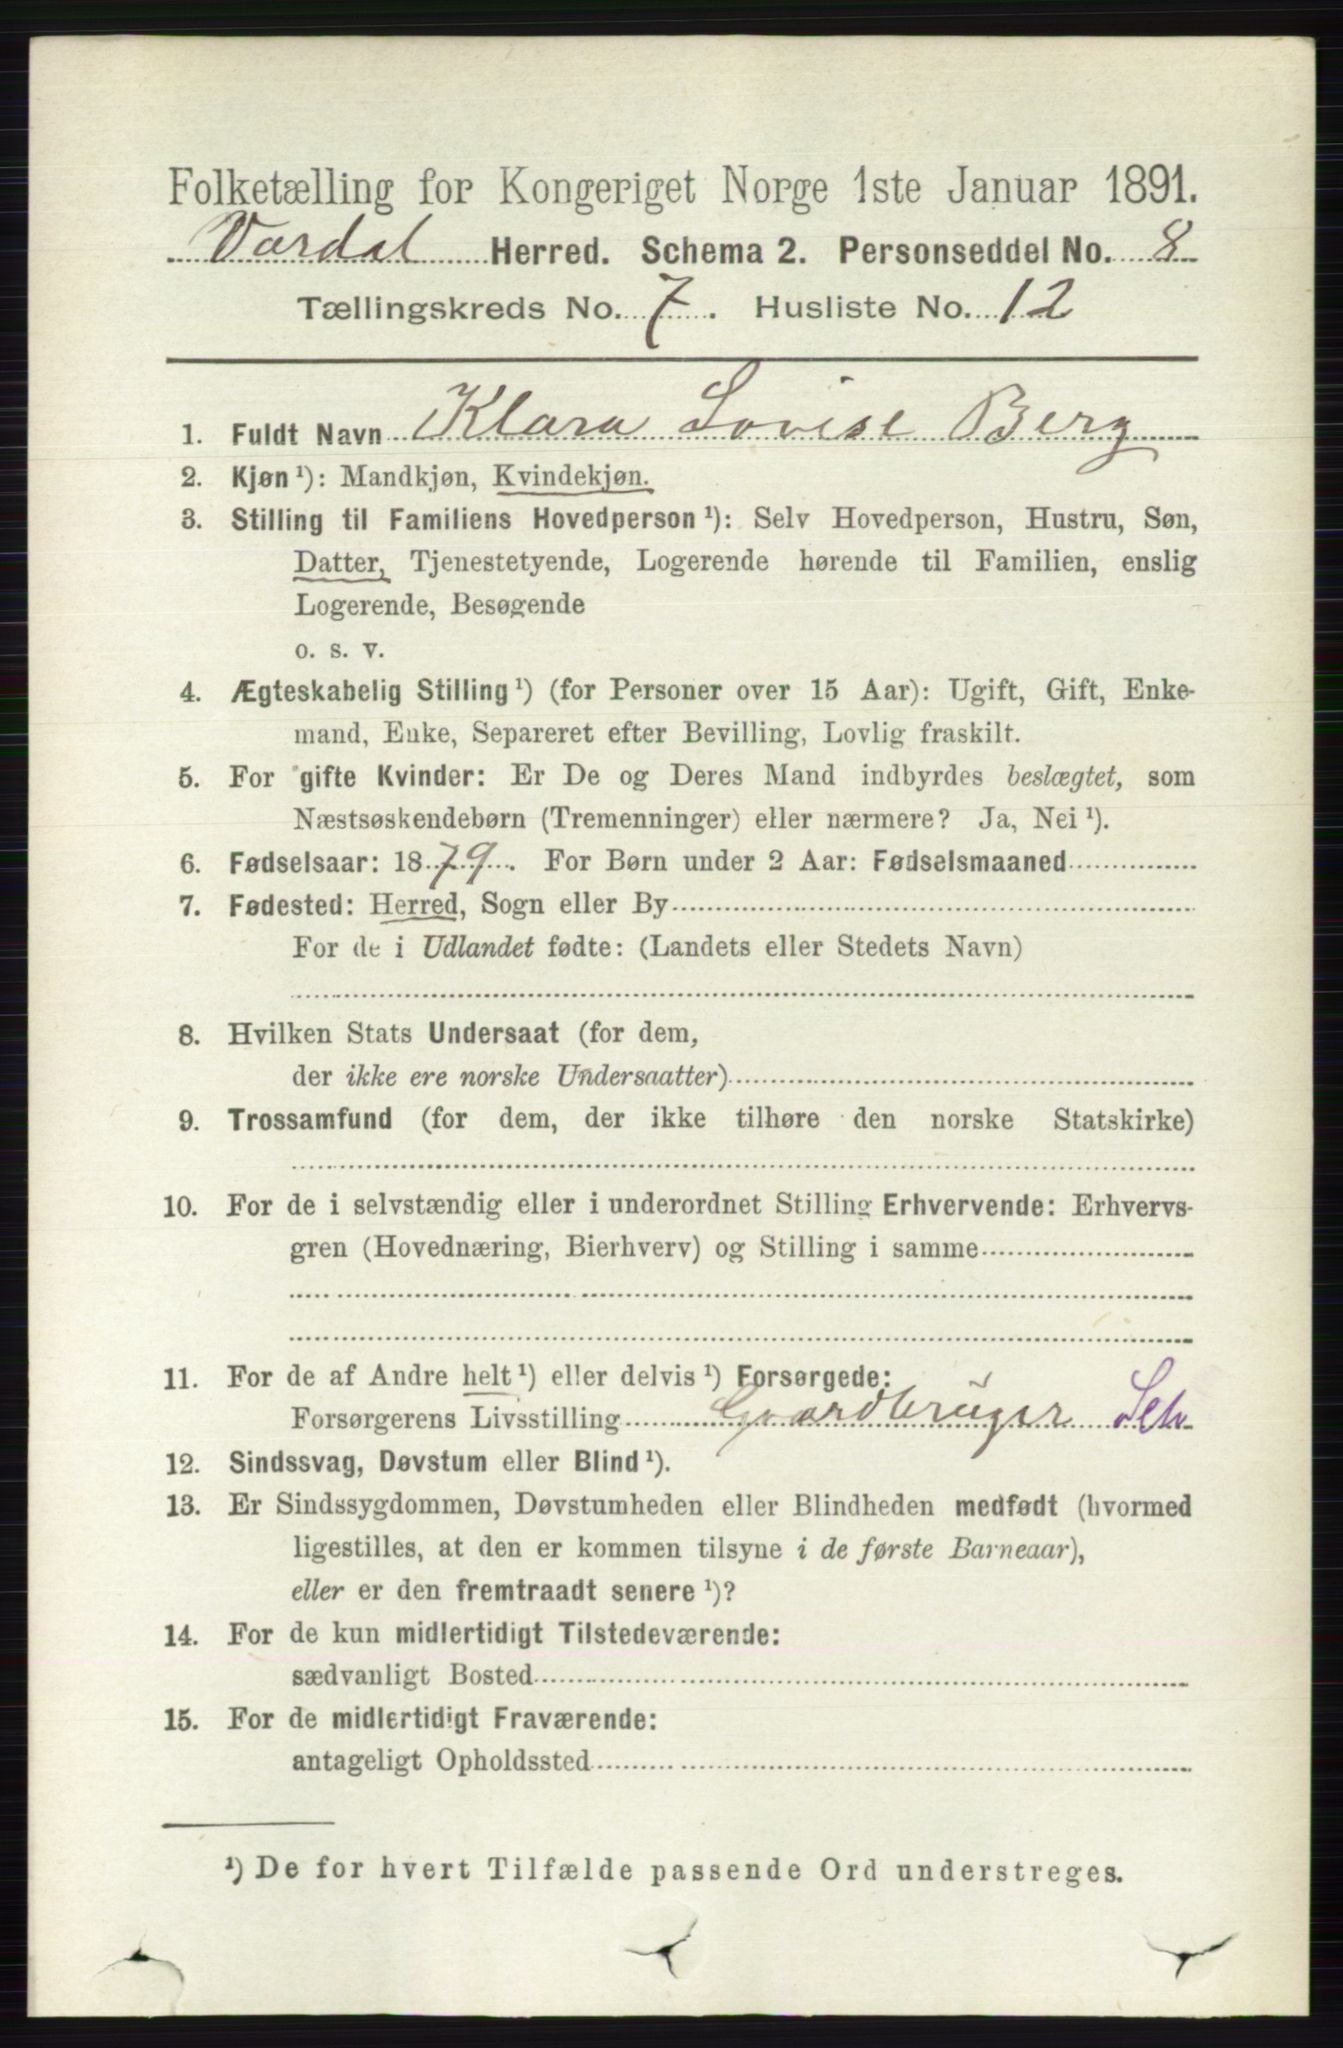 Folketælling for Kongeriget Norge 1ste Januar 1891.
Vardal Herred. Schema 2. Personseddel No. 8
Tællingskreds No. 7. Husliste No. 12
1. Fuldt Navn Klara Lovise Berg
2. Kjøn¹): Mandkjøn, Kvindekjøn.
3. Stilling til Familiens Hovedperson¹): Selv Hovedperson, Hustru, Søn,
Datter, Tjenestetyende, Logerende hørende til Familien, enslig
Logerende, Besøgende
o. s. v.
4. Ægteskabelig Stilling¹) (for Personer over 15 Aar): Ugift, Gift, Enke-
mand, Enke, Separeret efter Bevilling, Lovlig fraskilt.
5. For gifte Kvinder: Er De og Deres Mand indbyrdes beslægtet, som
Næstsøskendebørn (Tremenninger) eller nærmere? Ja, Nei¹).
6. Fødselsaar: 1879. For Børn under 2 Aar: Fødselsmaaned
7. Fødested: Herred, Sogn eller By
For de i Udlandet fødte: (Landets eller Stedets Navn)
8. Hvilken Stats Undersaat (for dem,
der ikke ere norske Undersaatter)
9. Trossamfund (for dem, der ikke tilhøre den norske Statskirke)
10. For de i selvstændig eller i underordnet Stilling Erhvervende: Erhvervs-
gren (Hovednæring, Bierhverv) og Stilling i samme
11. For de af Andre helt¹) eller delvis¹) Forsørgede:
Forsørgerens Livsstilling Gaardbruger Selv
12. Sindssvag, Døvstum eller Blind¹).
13. Er Sindssygdommen, Døvstumheden eller Blindheden medfødt (hvormed
ligestilles, at den er kommen tilsyne i de første Barneaar),
eller er den fremtraadt senere¹)?
14. For de kun midlertidigt Tilstedeværende:
sædvanligt Bosted
15. For de midlertidigt Fraværende:
antageligt Opholdssted
¹) De for hvert Tilfælde passende Ord understreges.